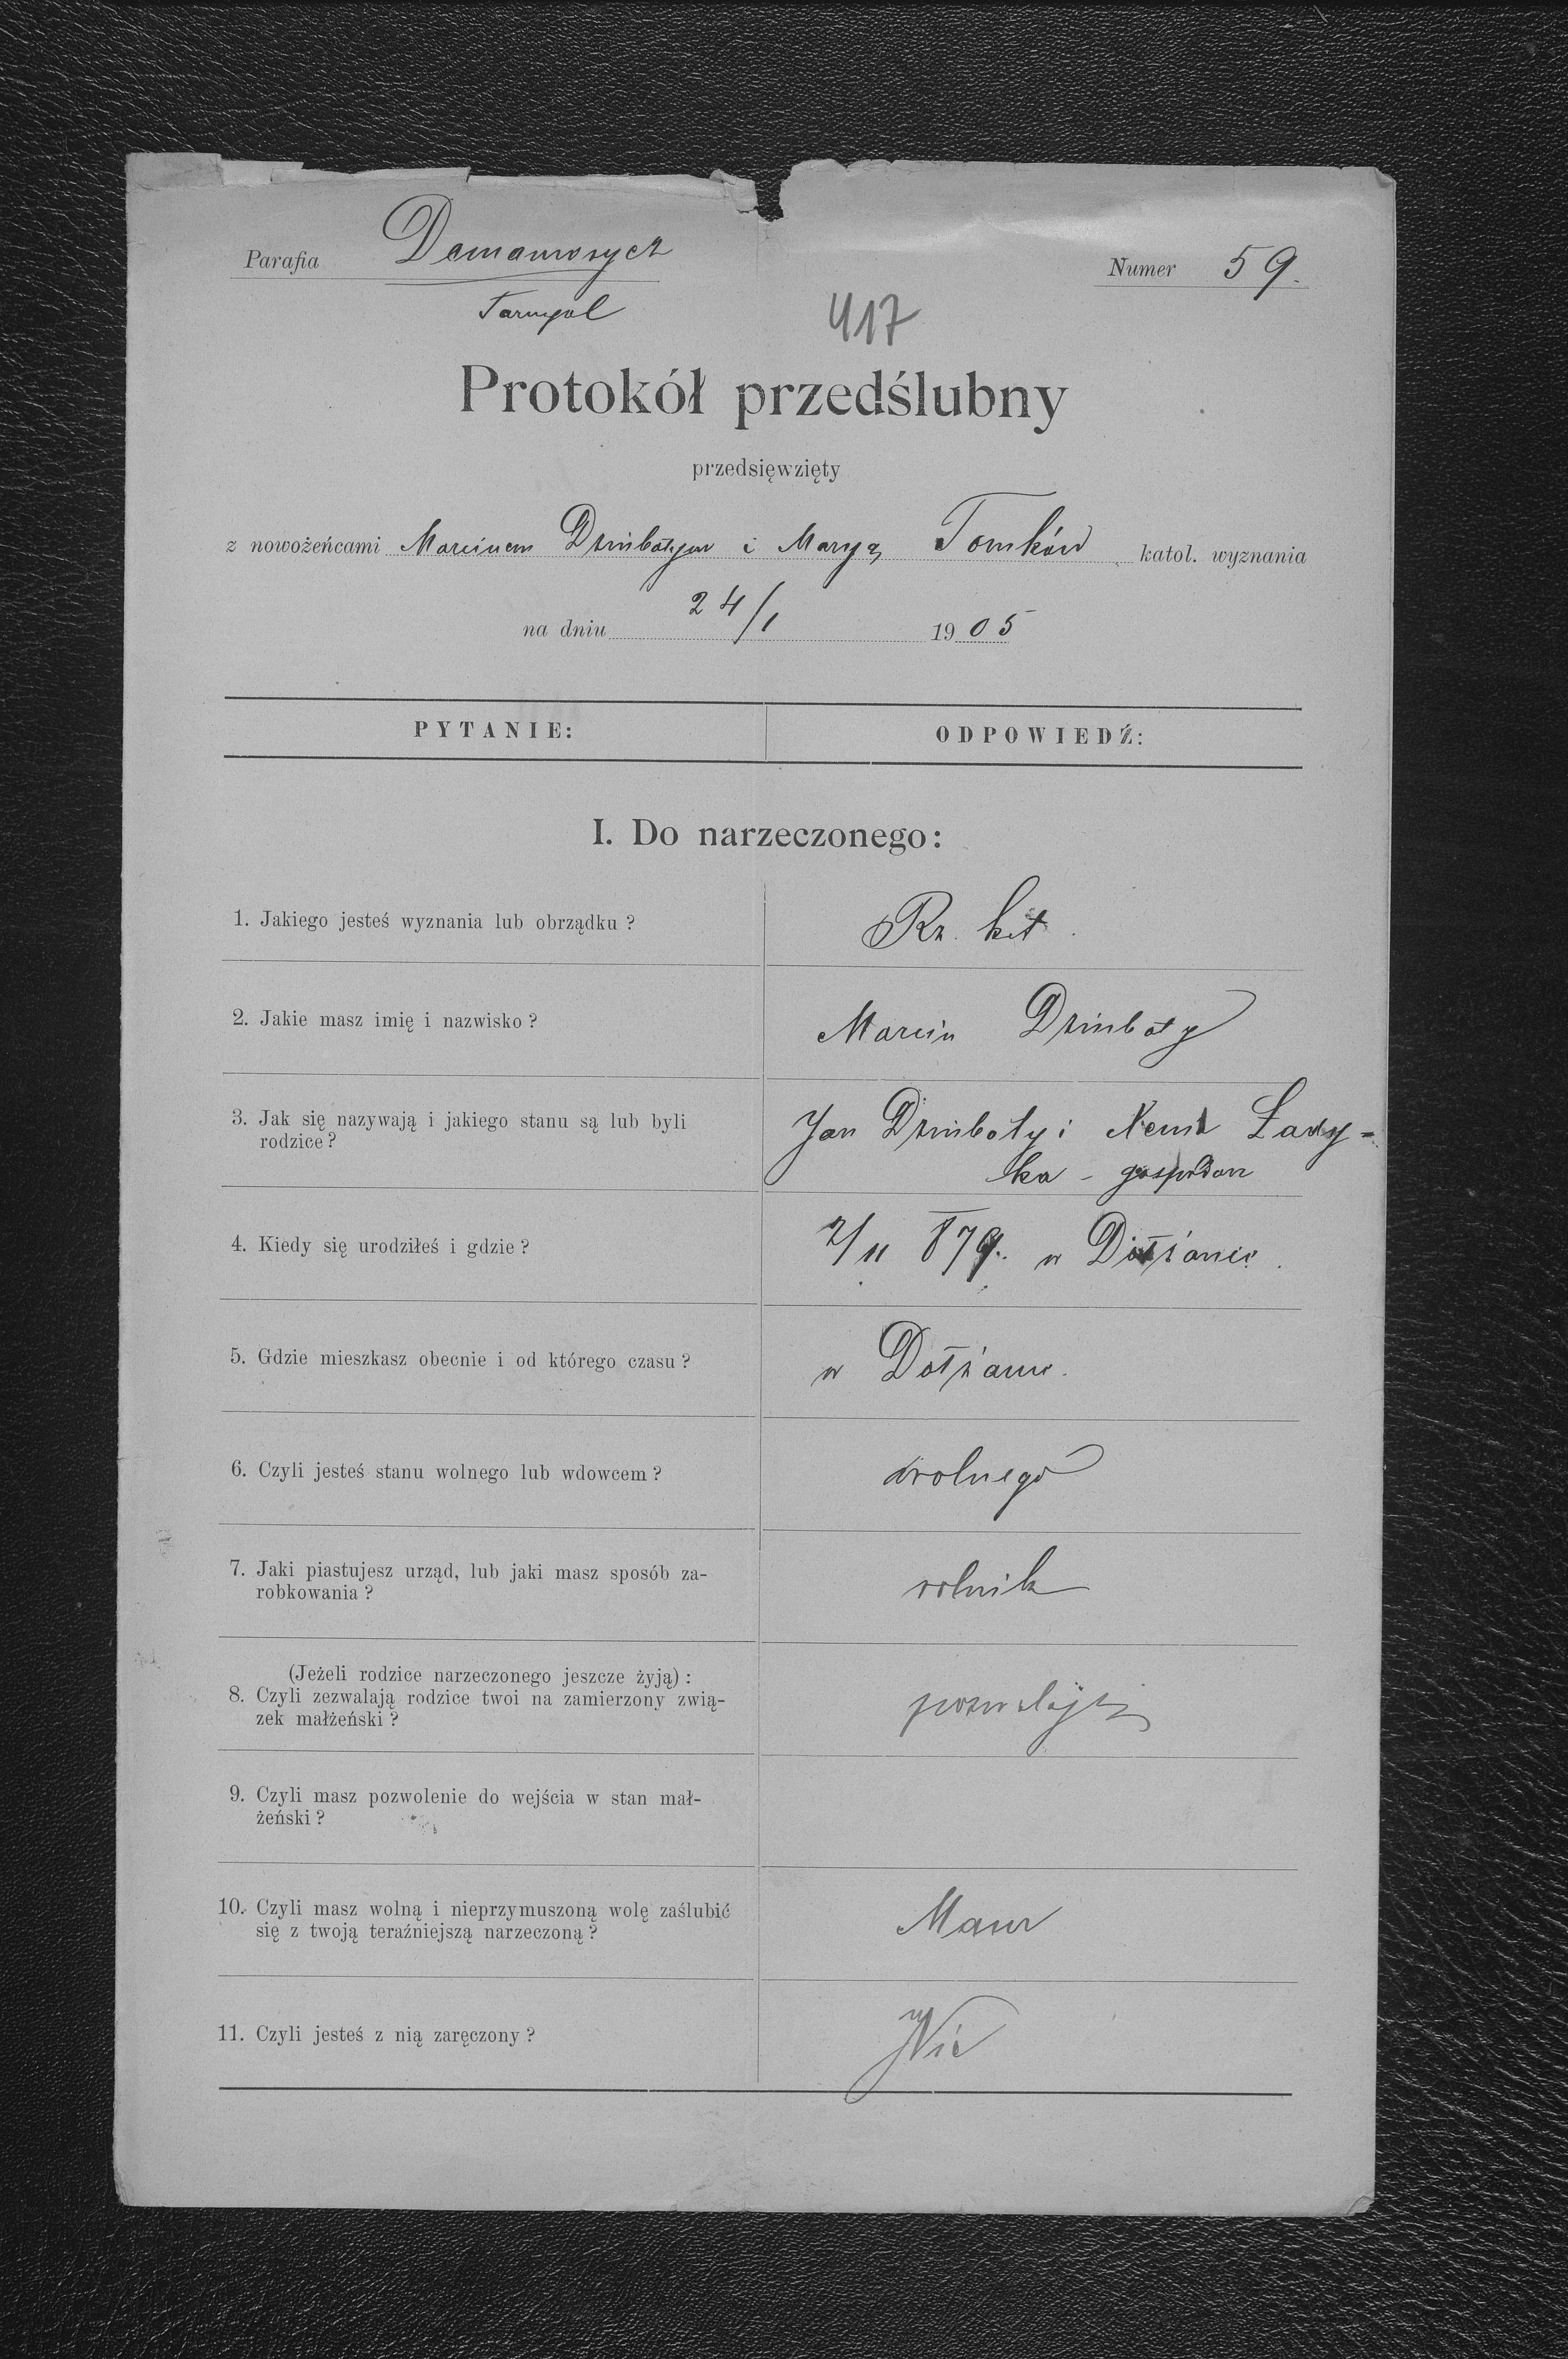 Parafia Denanowycz Numer 59.
Tarnopol
417
Protokół przedślubny
przedsięwzięty
z nowożeńcami Marcinem i Maryą Tomków katol. wyznania
na dniu 24/1 1905
PYTANIE: ODPOWIEDŹ:
I. Do narzeczonego:
1. Jakiego jesteś wyznania lub obrządku? Rz. kat.
2. Jakie masz imię i nazwisko? Marcin Dziubaty
3. Jak się nazywają i jakiego stanu są lub byli Jan Dziubaty i Łady=
rodzice? ka - gospodarz
4. Kiedy się urodziłeś i gdzie? 2/11 879. w Dołżance.
5. Gdzie mieszkasz obecnie i od którego czasu? w Dołżance.
6. Czyli jesteś stanu wolnego lub wdowcem? wolnego
7. Jaki piastujesz urząd, lub jaki masz sposób za-
robkowania? rolnik
(Jeżeli rodzice narzeczonego jeszcze żyją):
8. Czyli zezwalają rodzice twoi na zamierzony zwią- pozwalają
zek małżeński?
9. Czyli masz pozwolenie do wejścia w stan mał-
żeński?
10. Czyli masz wolną i nieprzymuszoną wolę zaślubić Mam
się z twoją teraźniejszą narzeczoną?
11. Czyli jesteś z nią zaręczony? Nie